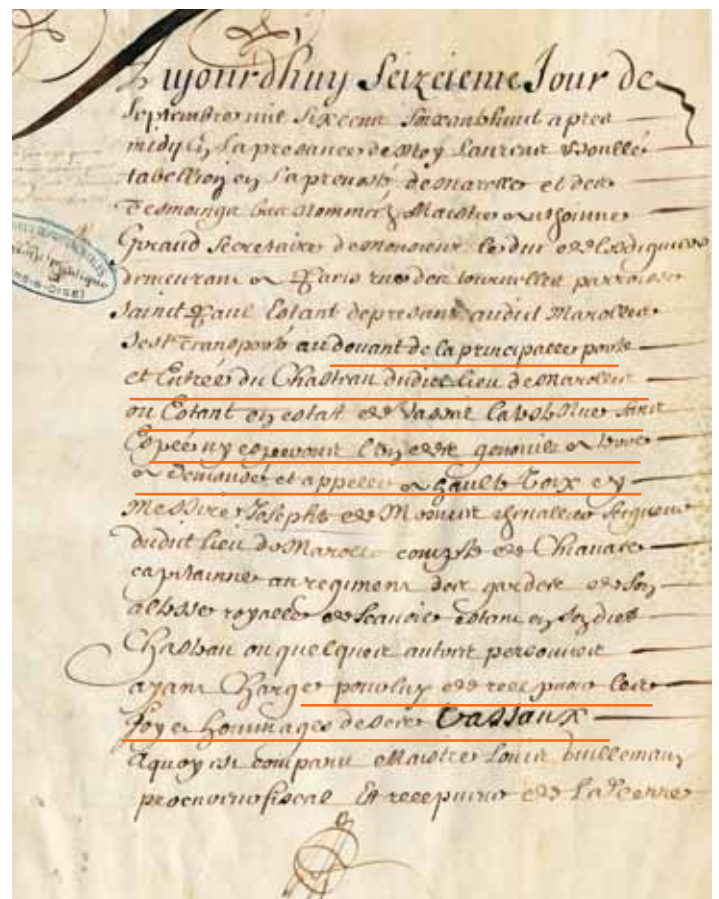 Aujourdhuy Seizeieme Jour de
Septembre mil six cent soixanthuict apres
midy En la presance de Moy Laurent
tabellion en la prevosté de marolles et des
Tesmoings bas nommez Maistre Anthoinne
Giraud Secretaire de monsieur le duc de Lesdiguieres
demeurant a Paris rue des tournelles parroisse
Saint Paul Estant depresant audict Marolles
sest transporté au douant de la principalle porte
et Entrée du Chasteau dudict lieu de marolles
ou Estant en estat de vassal la teste nue sans
Espée ny esperons Un genouil a terre
a demandé et appellé a haulte voix
Messire Joseph de chevallier seigneur
dudict lieu de Marolles compte de
cappitainne au regiment des gardes de Son
altesse royalle de Savoie estant en sondict
Chasteau ou quelques autres personnes
ayant Charge pour luy de recepvoir les
foy et hommages de ses Vassaux
Aquoy est comparu Maistre Louis Guillemau
procureur fiscal Et recepveur de la terre